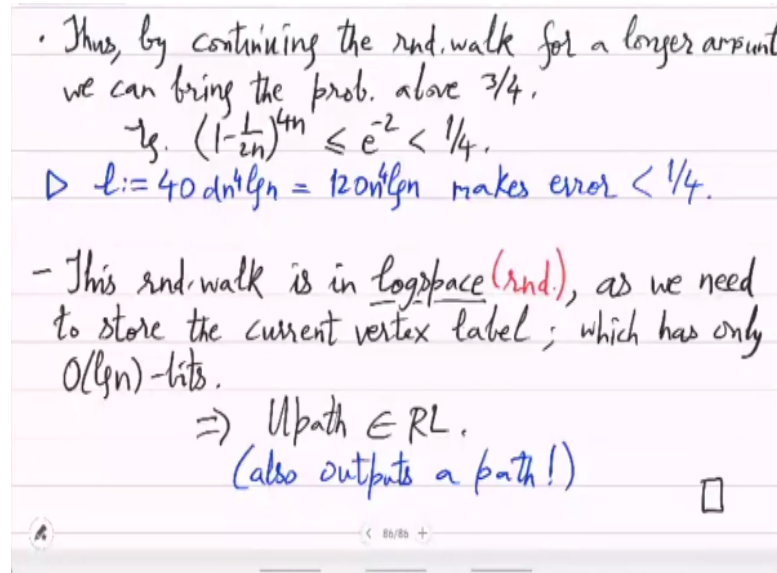 · Thus, by continuing the rnd. walk for a longer amount
we can bring the prob. above 3/4.
Eg. (1-1/2n)^{4n} ≤ e^{-2} < 1/4.
▷ l:= 40 dn⁴lgn = 120n⁴lgn makes error < 1/4.
- This rnd. walk is in logspace (rnd.), as we need
to store the current vertex label ; which has only
O(lgn)-bits.
⇒ Upath ∈ RL.
(also outputs a path!)
□
< 86/86 +